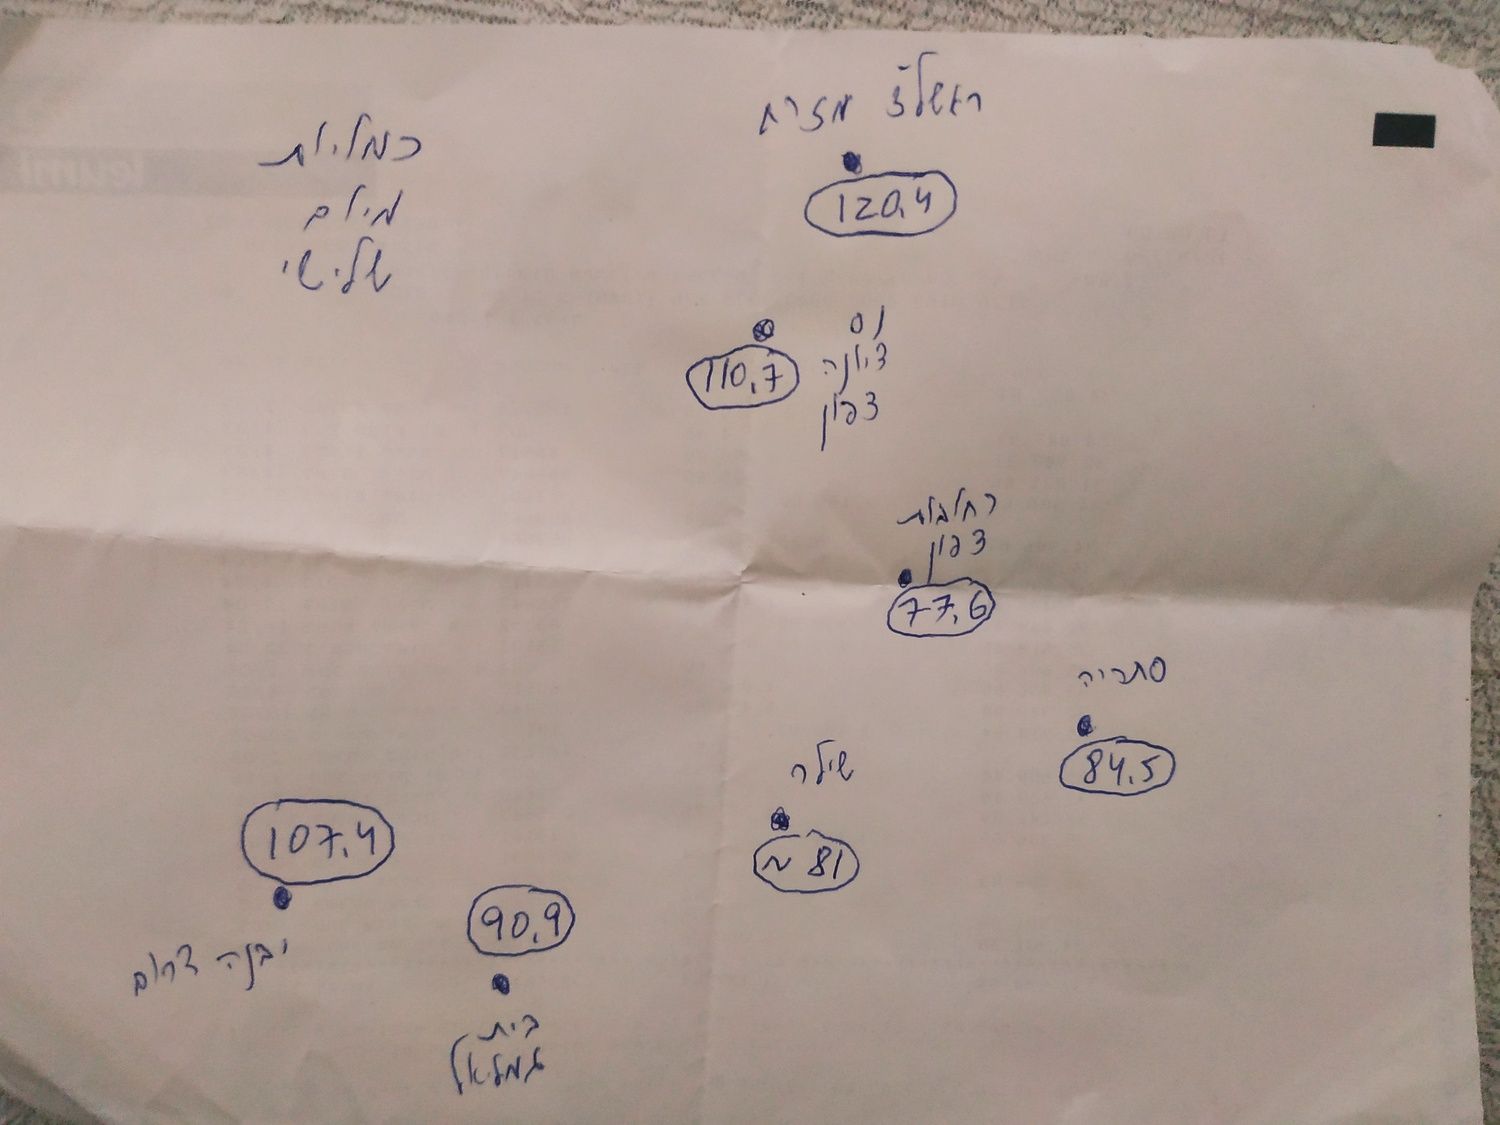 ראשל"צ מזרח
120,4
כמליות
מיום
שלישי
נס
ציונה
צפון
110,7
רחובות
צפון
77,6
סתריה
84,5
שילר
~ 81
107,4
יבנה דרום
90,9
בית
גמליאל